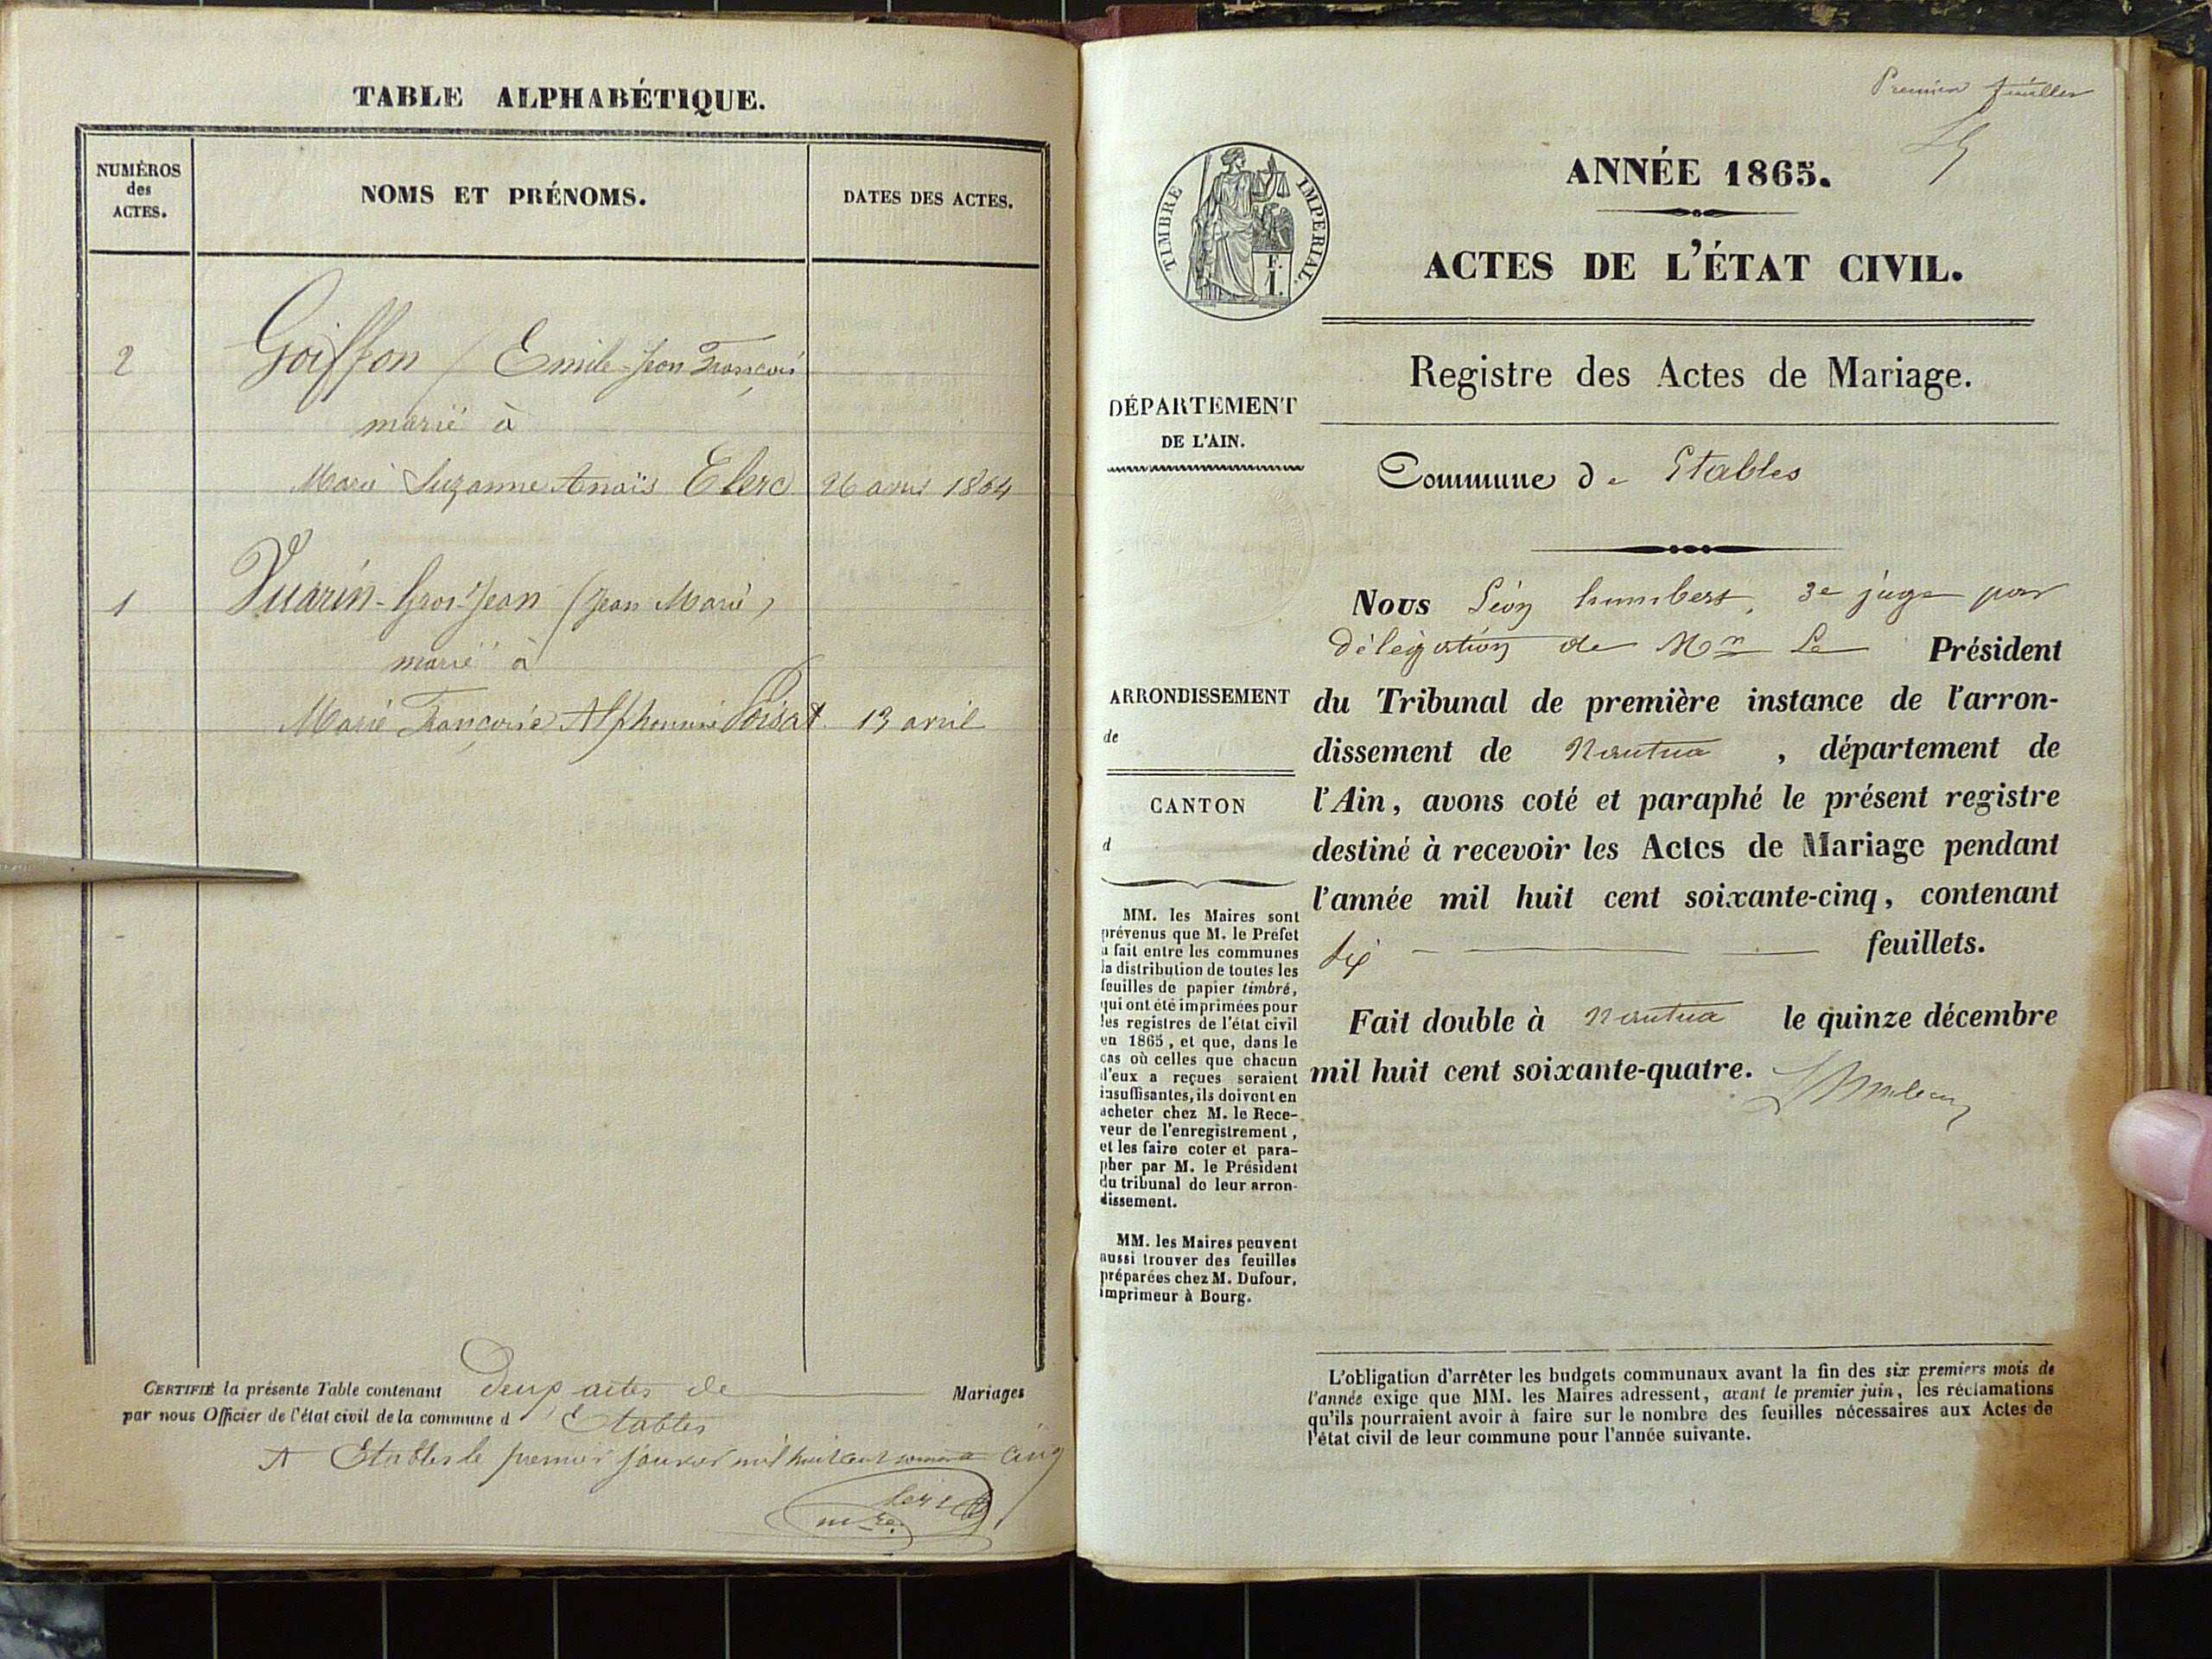 TABLE ALPHABÉTIQUE.
NUMÉROS
des
ACTES.
NOMS ET PRÉNOMS.
DATES DES ACTES.
2 Goiffon / Emile-Jean François
marié à
Marie Suzanne Anaïs Clerc 26 avril 1864
1 Vuarin-Gros-Jean (Jean Marie)
marié à
Marie Françoise Alphonsine Poisat 13 avril
CERTIFIÉ la présente Table contenant Deux actes de Mariages
par nous Officier de l'état civil de la commune d'Etables
A Etables le premier janvier mil huit cent soixante cinq
Clerc
Premier feuillet
ANNÉE 1865.
TIMBRE IMPERIAL.
F.
1.
ACTES DE L'ÉTAT CIVIL.
Registre des Actes de Mariage.
DÉPARTEMENT
DE L'AIN.
Commune de Etables
Nous Léon humbert, 3e juge par
délégation de Mr Le Président
du Tribunal de première instance de l'arron-
dissement de Nantua, département de
l'Ain, avons coté et paraphé le présent registre
destiné à recevoir les Actes de Mariage pendant
l'année mil huit cent soixante-cinq, contenant
six feuillets.
Fait double à Nantua le quinze décembre
mil huit cent soixante-quatre.
ARRONDISSEMENT
de
CANTON
d
MM. les Maires sont
prévenus que M. le Préfet
a fait entre les communes
la distribution de toutes les
feuilles de papier timbré,
qui ont été imprimées pour
les registres de l'état civil
en 1865, et que, dans le
cas où celles que chacun
d'eux a reçues seraient
insuffisantes, ils doivent en
acheter chez M. le Rece-
veur de l'enregistrement,
et les faire coter et para-
pher par M. le Président
du tribunal de leur arron-
dissement.
MM. les Maires peuvent
aussi trouver des feuilles
préparées chez M. Dufour,
imprimeur à Bourg.
L'obligation d'arrêter les budgets communaux avant la fin des six premiers mois de
l'année exige que MM. les Maires adressent, avant le premier juin, les réclamations
qu'ils pourraient avoir à faire sur le nombre des feuilles nécessaires aux Actes de
l'état civil de leur commune pour l'année suivante.